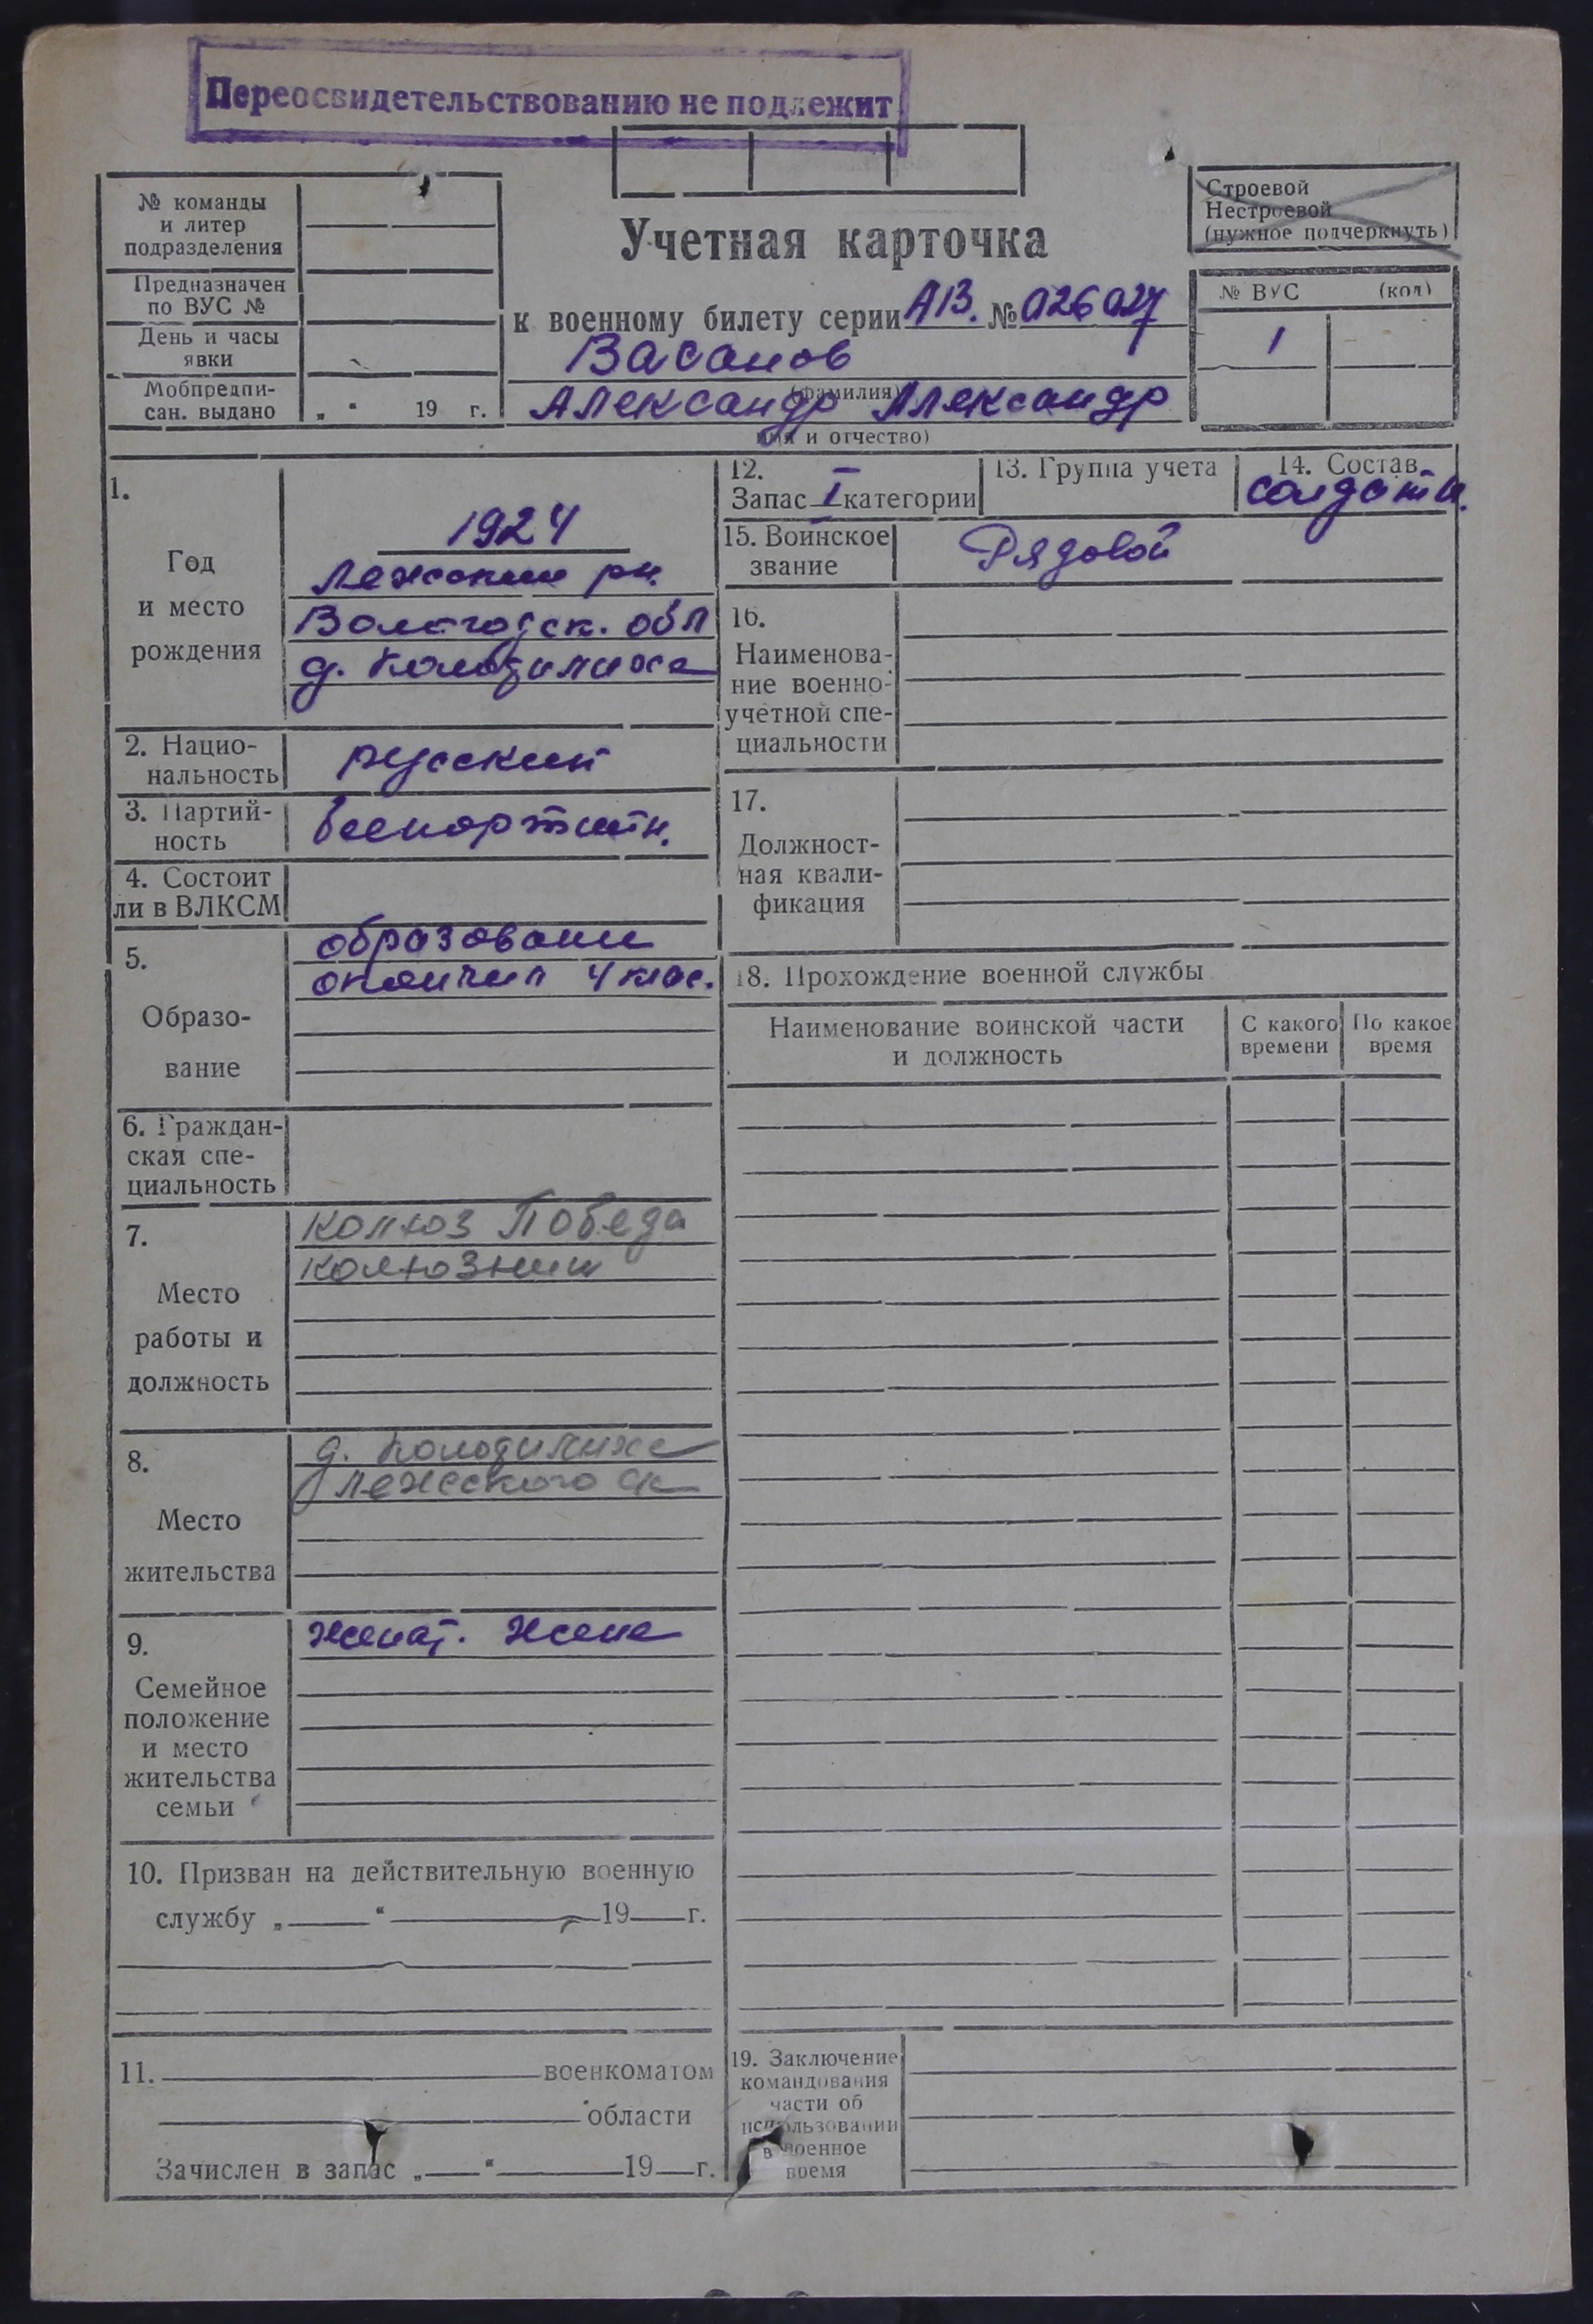 Переосвидетельствованию не подлежит
№ команды
и литер
подразделения
Предназначен
по ВУС №
День и часы
явки
Мобпредпи-
сан. выдано „ “ 19 г.
Учетная карточка
к военному билету серии АВ. № 026027
Васанов
(фамилия)
Александр Александр
имя и отчество)
Строевой
Нестроевой
(нужное подчеркнуть)
№ ВУС (код)
1
1.
Год
и место
рождения
1924
Лежский рн.
Вологодск. обл
д. Колодилиха
2. Нацио-
нальность
русский
3. Партий-
ность
беспартийн.
4. Состоит
ли в ВЛКСМ
5.
Образо-
вание
образование
окончил 4 клас.
6. Граждан-
ская спе-
циальность
7.
Место
работы и
должность
колхоз Победа
колхозник
8.
Место
жительства
д. Колодилиха
Лежского ск
9.
Семейное
положение
и место
жительства
семьи
женат. жена
10. Призван на действительную военную
службу „ “ 19 г.
11. военкоматом
области
Зачислен в запас „ “ 19 г.
12.
Запас I категории
13. Группа учета
14. Состав
солдаты.
15. Воинское
звание
Рядовой
16.
Наименова-
ние военно-
учетной спе-
циальности
17.
Должност-
ная квали-
фикация
18. Прохождение военной службы
Наименование воинской части
и должность
С какого
времени
По какое
время
19. Заключение
командования
части об
использовании
в военное
время